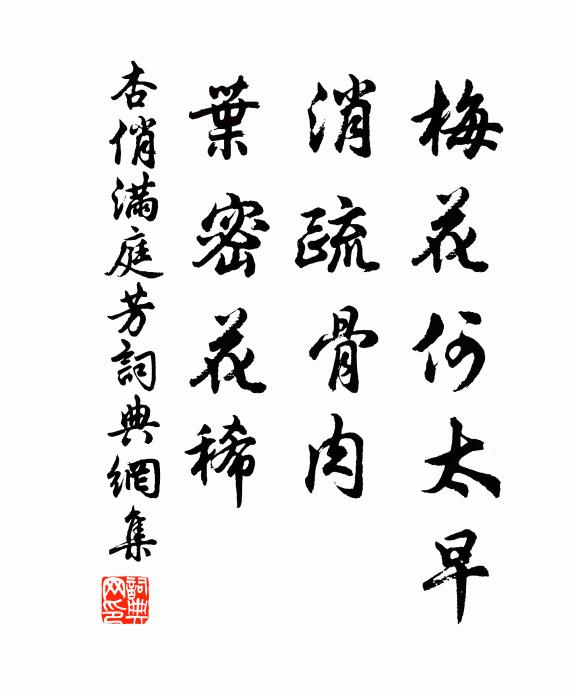 梅花何太早
消疏骨肉
葉密花稀
杏俏滿庭芳詞典網集
詞典網印